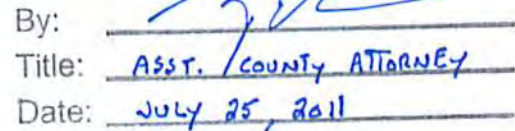 By:
Title: ASST. COUNTY ATTORNEY
Date: JULY 25, 2011